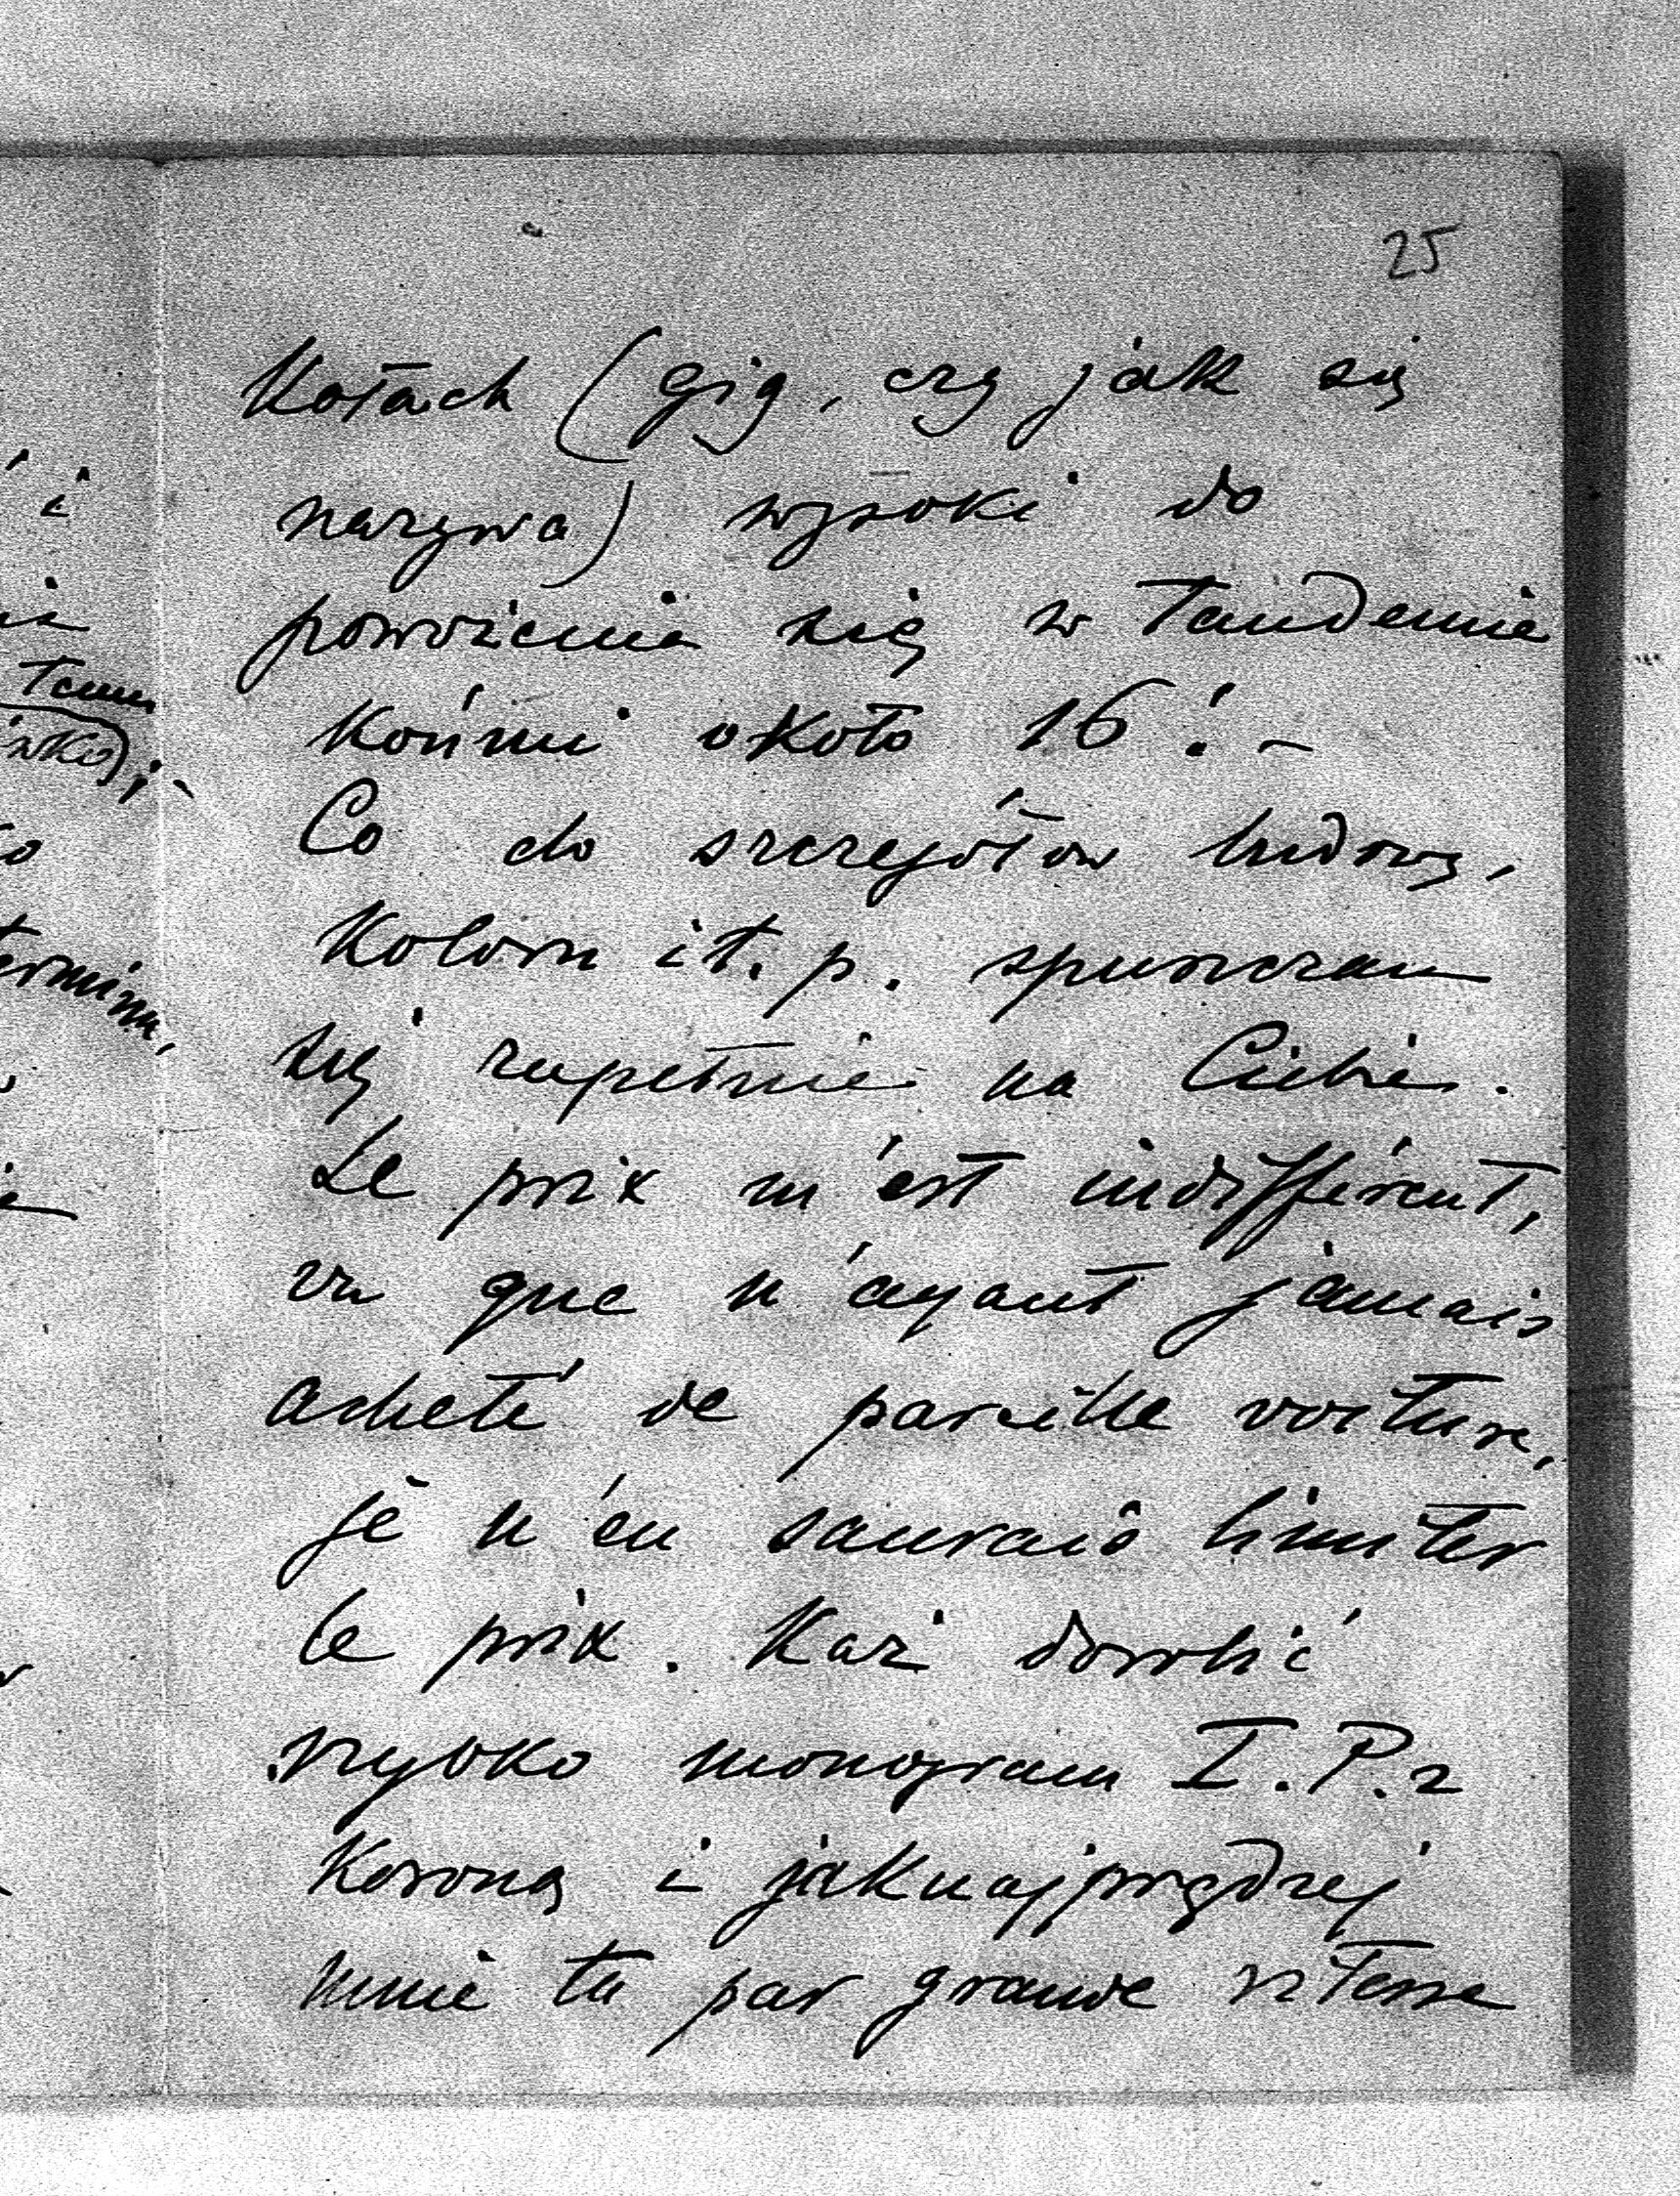 25
kołach (gig, czy jak się
nazywa) wysoki do
powożenia się w tandemie
końmi około 16! –
Co do szczegółów budowy,
koloru i t. p. spuszczam
się zupełnie na Ciebie.
Le prix m'est indifférent,
vu que n'ayant jamais
acheté de pareille voiture,
je n'en saurais limiter
le prix. Każ dorobić
szybko monogram I. P. z
Koroną i jaknajprędzej
mnie tu par grande vitesse